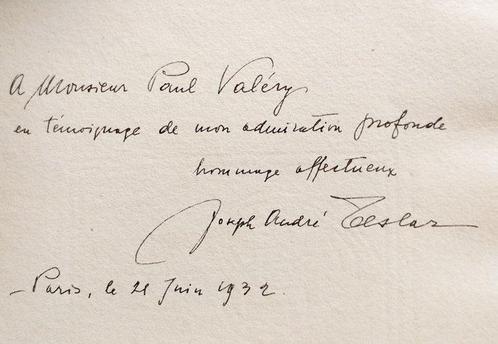 A Monsieur Paul Valéry
en témoignage de mon admiration profonde
hommage affectueux
Joseph André Teslar
– Paris, le 21 Juin 1932.